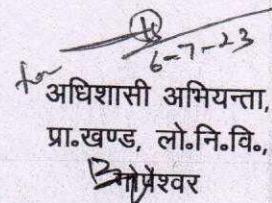 6-7-23
for
अधिशासी अभियन्ता,
प्रा०खण्ड, लो०नि०वि०,
गोपेश्वर